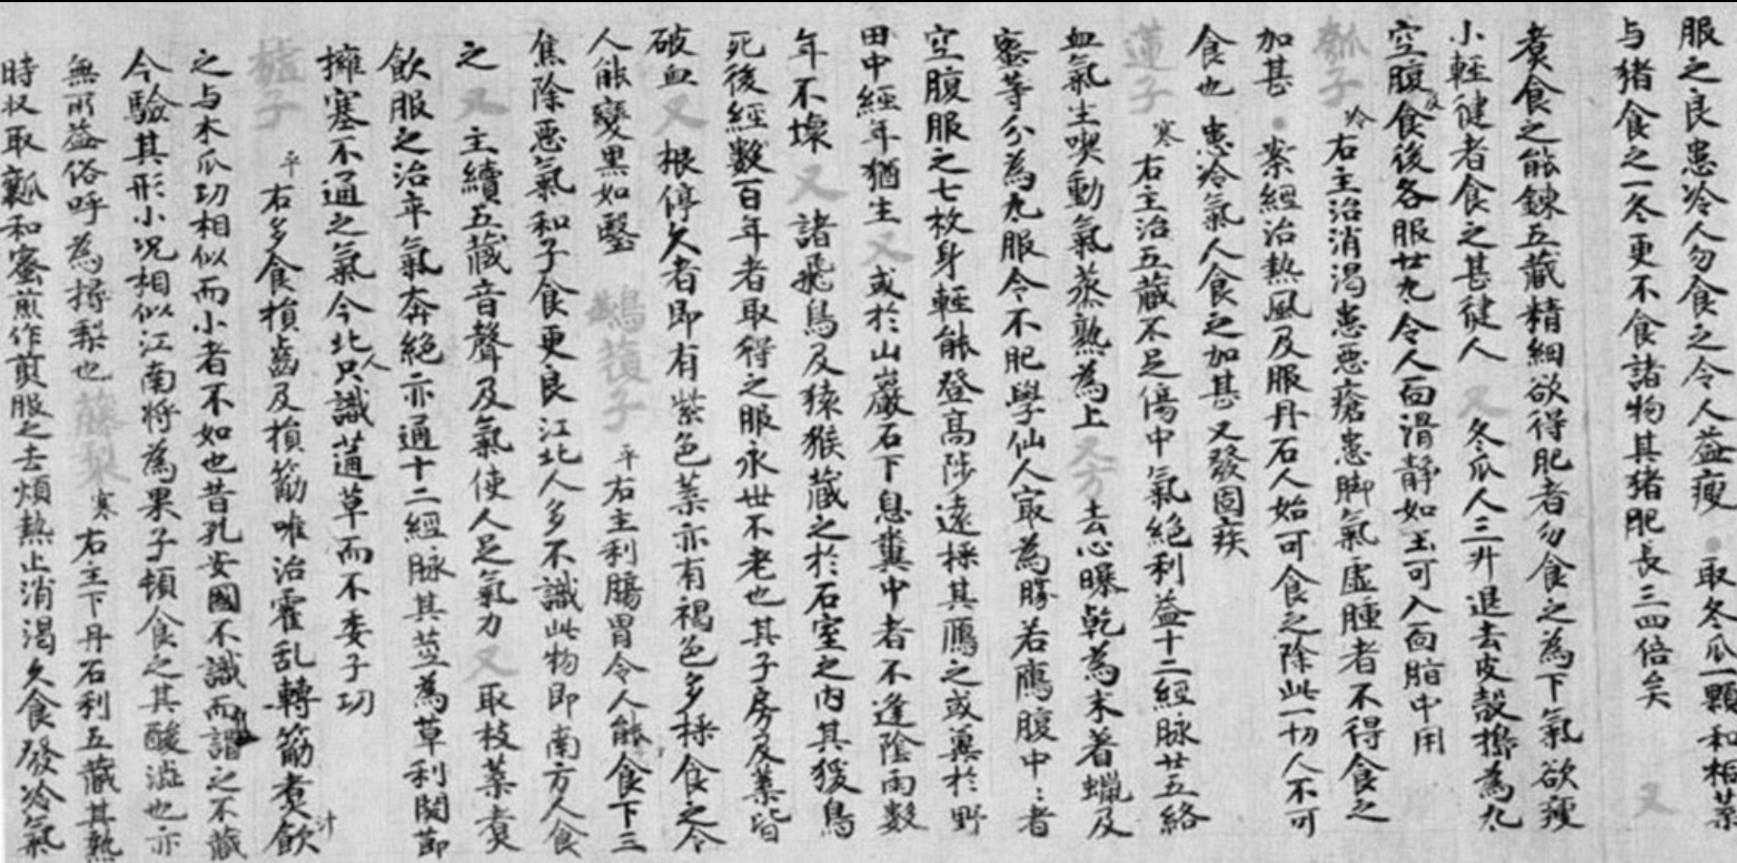 服之良患冷人勿食之令人益瘦●取冬瓜一顆和桐葉
与猪食之一冬更不食諸物其猪肥長三四倍矣 又
煮食之能鍊五藏精細欲得肥者勿食之為下氣欲瘦
小輕健者食之甚健人 又 冬瓜人三升退去皮殼擣為丸
空腹及食後各服廿丸令人面滑静如玉可入面脂中用
瓠子 冷 右主治消渴患惡瘡患脚氣虛腫者不得食之
加甚●案經治熱風及服丹石人始可食之除此一切人不可
食也 患冷氣人食之加甚又發固疾
蓮子 寒 右主治五藏不足傷中氣絕利益十二經脉廿五絡
血氣生喫動氣蒸熟為上 又方 去心曝乾為末著蠟及
蜜等分為丸服令不肥學仙人寂為勝若鴈腹中:者
空腹服之七枚身輕能登高陟遠採其鴈之或糞於野
田中經年猶生 又 或於山巖石下息糞中者不逢陰雨數
年不壞 又 諸飛鳥及猿猴藏之於石室之内其猨鳥
死後經數百年者取得之服永世不老也其子房及葉皆
破血 又 根停久者即有紫色葉亦有褐色多採食之令
人能變黑如瑿 鷰蕧子 平 右主利腸胃令人能食下三
焦除惡氣和子食更良江北人多不識此物即南方人食
之 又 主續五藏音聲及氣使人足氣力 又 取枝葉煑
飲服之治卒氣奔絕亦通十二經脉其莖為草利関節
擁塞不通之氣今北人只識蓪草而不委子功
樝子 平 右多食損齒及損筯唯治霍乱轉筯煑汁飲
之与木瓜功相似而小者不如也昔孔安國不識而謂之不藏
今驗其形小況相似江南将為果子頓食之其酸澁也亦
無所益俗呼為㮋梨也 藤梨 寒 右主下丹石利五藏其熟
時收取瓤和蜜煎作煎服之去煩熱止消渴久食發冷氣